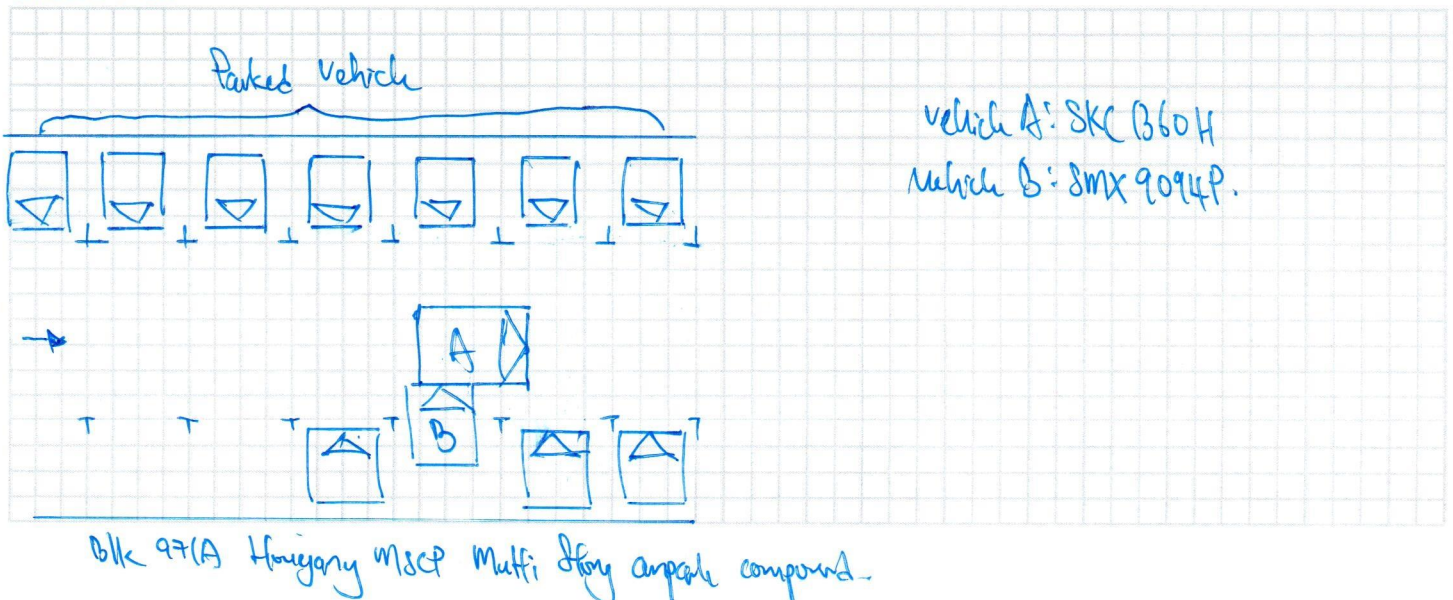 Parked Vehicle
Vehicle A: SKC 1360H
Vehicle B: SMX 9094P.
A
B
Blk 971A Hougang MSCP Multi Storey carpark compound.